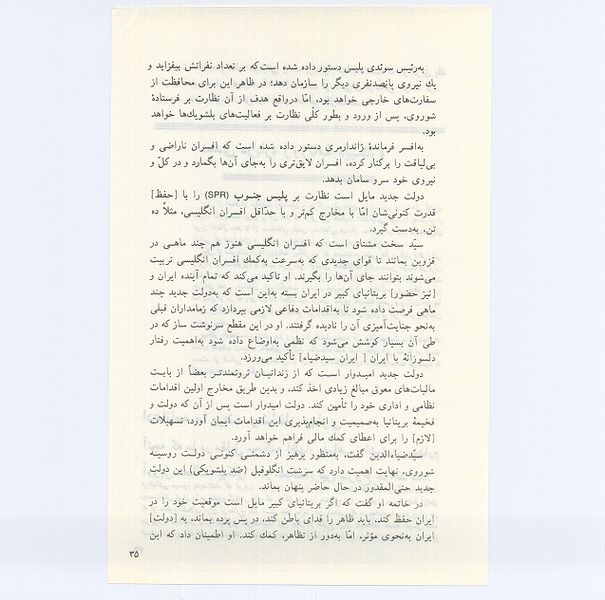 به‌رئیس سوئدی پلیس دستور داده شده است که بر تعداد نفراتش بیفزاید و
یك نیروی پانصدنفری دیگر را سازمان دهد؛ در ظاهر این برای محافظت از
سفارت‌های خارجی خواهد بود، امّا درواقع هدف از آن نظارت بر فرستادهٔ
شوروی، پس از ورود و بطور کلّی نظارت بر فعالیت‌های بلشویك‌ها خواهد
بود.
به‌افسر فرماندهٔ ژاندارمری دستور داده شده است که افسران ناراضی و
بی‌لیاقت را برکنار کرده، افسران لایق‌تری را به‌جای آن‌ها بگمارد و در کلّ و
نیروی خود سرو سامان بدهد.
دولت جدید مایل است نظارت بر پلیس جنوب (SPR) را با [حفظ]
قدرت کنونی‌شان امّا با مخارج کم‌تر و با حدّاقل افسران انگلیسی، مثلاً ده
تن، به‌دست گیرد.
سیّد سخت مشتاق است که افسران انگلیسی هنوز هم چند ماهی در
قزوین بمانند تا قوای جدیدی که به‌سرعت به‌کمك افسران انگلیسی تربیت
می‌شوند بتوانند جای آن‌ها را بگیرند. او تاکید می‌کند که تمام آینده ایران و
[نیز حضور] بریتانیای کبیر در ایران بسته به‌این است که به‌دولت جدید چند
ماهی فرصت داده شود تا به‌اقدامات دفاعی لازمی بپردازد که زمامداران قبلی
به‌نحو جنایت‌آمیزی آن را نادیده گرفتند. او در این مقطع سرنوشت ساز که در
طی آن بسیار کوشش می‌شود که نظمی به‌اوضاع داده شود به‌اهمیت رفتار
دلسوزانهٔ با ایران [ ایران سیدضیاء] تأکید می‌ورزد.
دولت جدید امیدوار است که از زندانیان ثروتمندتر بعضاً از بابت
مالیات‌های معوق مبالغ زیادی اخذ کند، و بدین طریق مخارج اولین اقدامات
نظامی و اداری خود را تأمین کند. دولت امیدوار است پس از آن که دولت و
فخیمهٔ بریتانیا به‌صمیمیت و انجام‌پذیری این اقدامات ایمان آورد، تسهیلات
[لازم] را برای اعطای کمك مالی فراهم خواهد آورد.
سیّدضیاءالدین گفت، به‌منظور پرهیز از دشمنی کنونی دولت روسیه
شوروی، نهایت اهمیت دارد که سرشت انگلوفیل (ضد بلشویکی) این دولت
جدید حتی‌المقدور در حال حاضر پنهان بماند.
در خاتمه او گفت که اگر بریتانیای کبیر مایل است موقعیت خود را در
ایران حفظ کند، باید ظاهر را فدای باطن کند، در پس پرده بماند، به [دولت]
ایران به‌نحوی مؤثر، امّا به‌دور از تظاهر، کمك کند. او اطمینان داد که این
۳۵